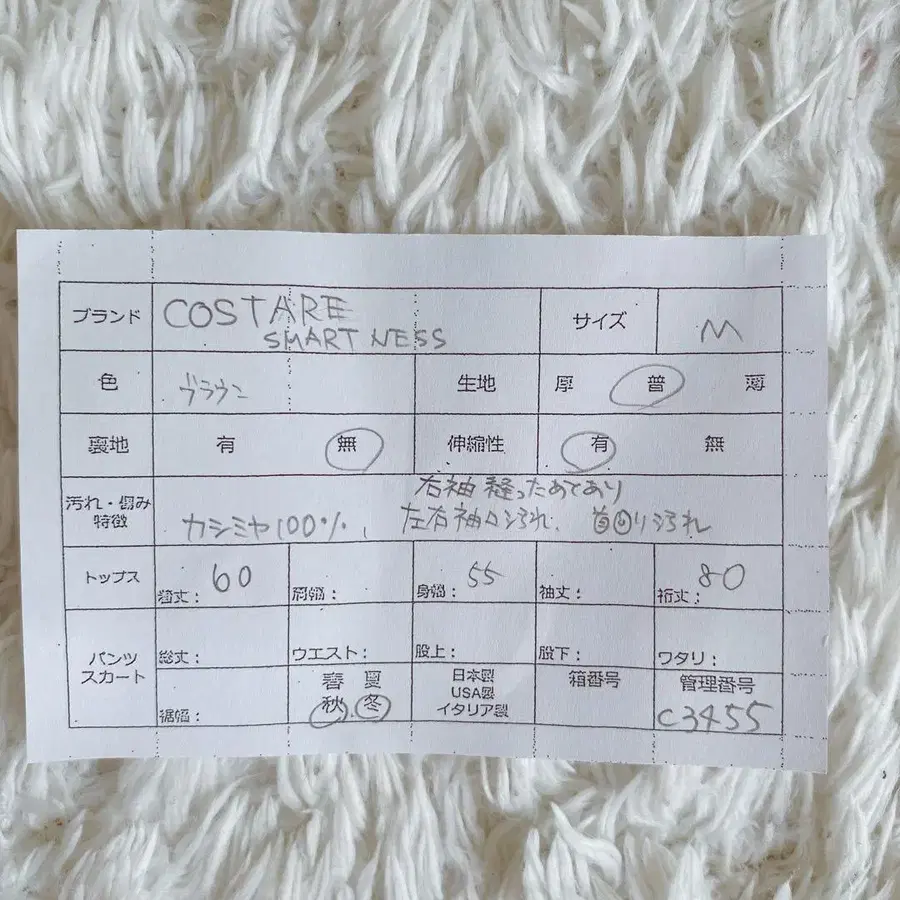 ブランド COSTARE サイズ M
SMART NESS
色 ブラウン 生地 厚 普 薄
裏地 有 無 伸縮性 有 無
汚れ・傷み 右袖 縫ったあとあり
特徴 カシミヤ100%、 左右袖口汚れ、 首回り汚れ
トップス 着丈: 60 肩幅: 身幅: 55 袖丈: 裄丈: 80
パンツ 総丈: ウエスト: 股上: 股下: ワタリ:
スカート 春 夏 日本製 箱番号 管理番号
USA製
裾幅: 秋 冬 イタリア製 C3455